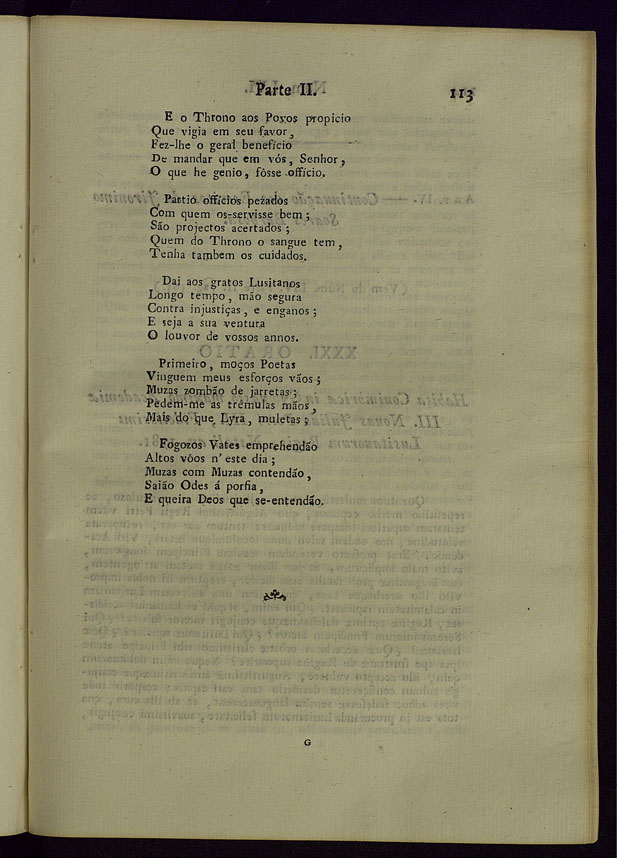 Parte II. 113
E o Throno aos Povos propicio
Que vigia em seu favor,
Fez-lhe o geral beneficio
De mandar que em vós, Senhor,
O que he genio, fôsse officio.
Partio officios pezados
Com quem os-servisse bem;
São projectos acertados;
Quem do Throno o sangue tem,
Tenha tambem os cuidados.
Dai aos gratos Lusitanos
Longo tempo, mão segura
Contra injustiças, e enganos;
E seja a sua ventura
O louvor de vossos annos.
Primeiro, moços Poetas
Vinguem meus esforços vãos;
Muzas zombão de jarretas;
Pedem-me as trémulas mãos,
Mais do que Lyra, muletas;
Fogozos Vates emprehendão
Altos vôos n'este dia;
Muzas com Muzas contendão,
Saião Odes á porfia,
E queira Deos que se-entendão.
G